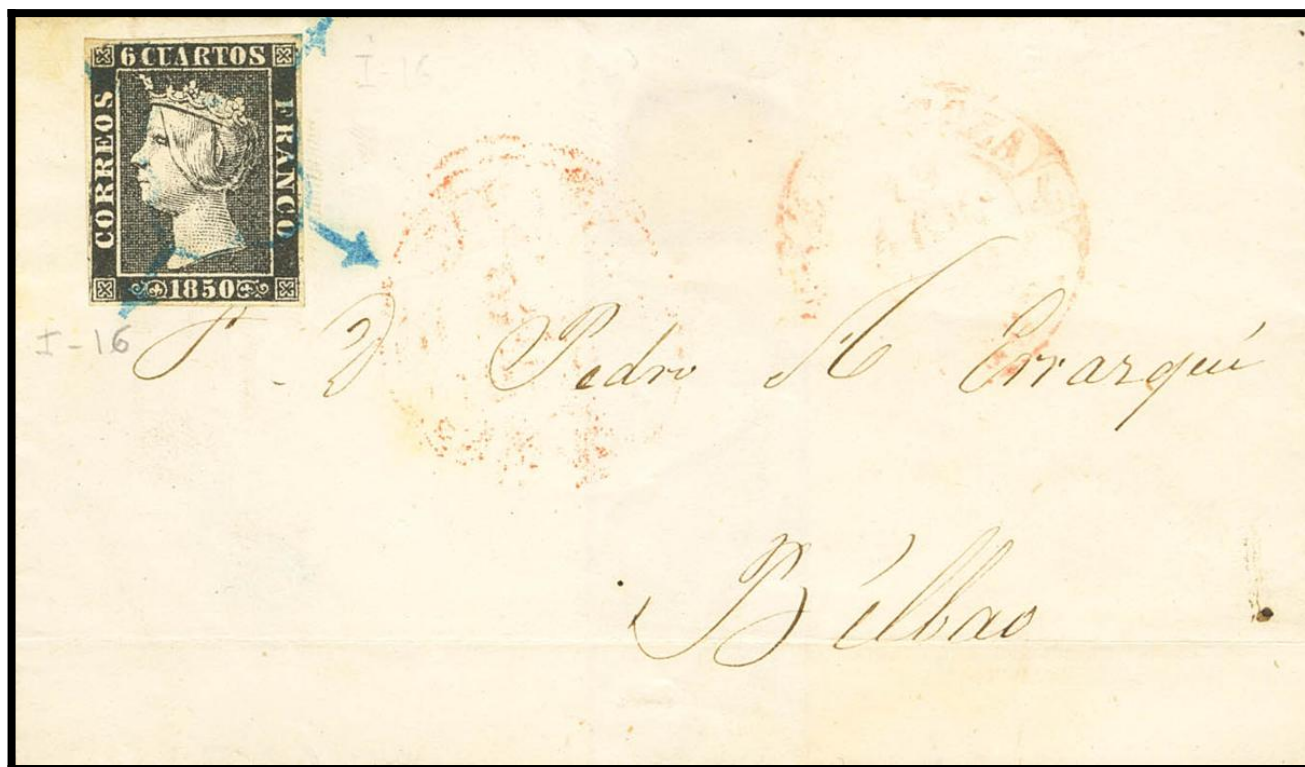 6 CUARTOS
CORREOS
FRANCO
1850
I-16
I-16
D Pedro Errazquú
Bilbao